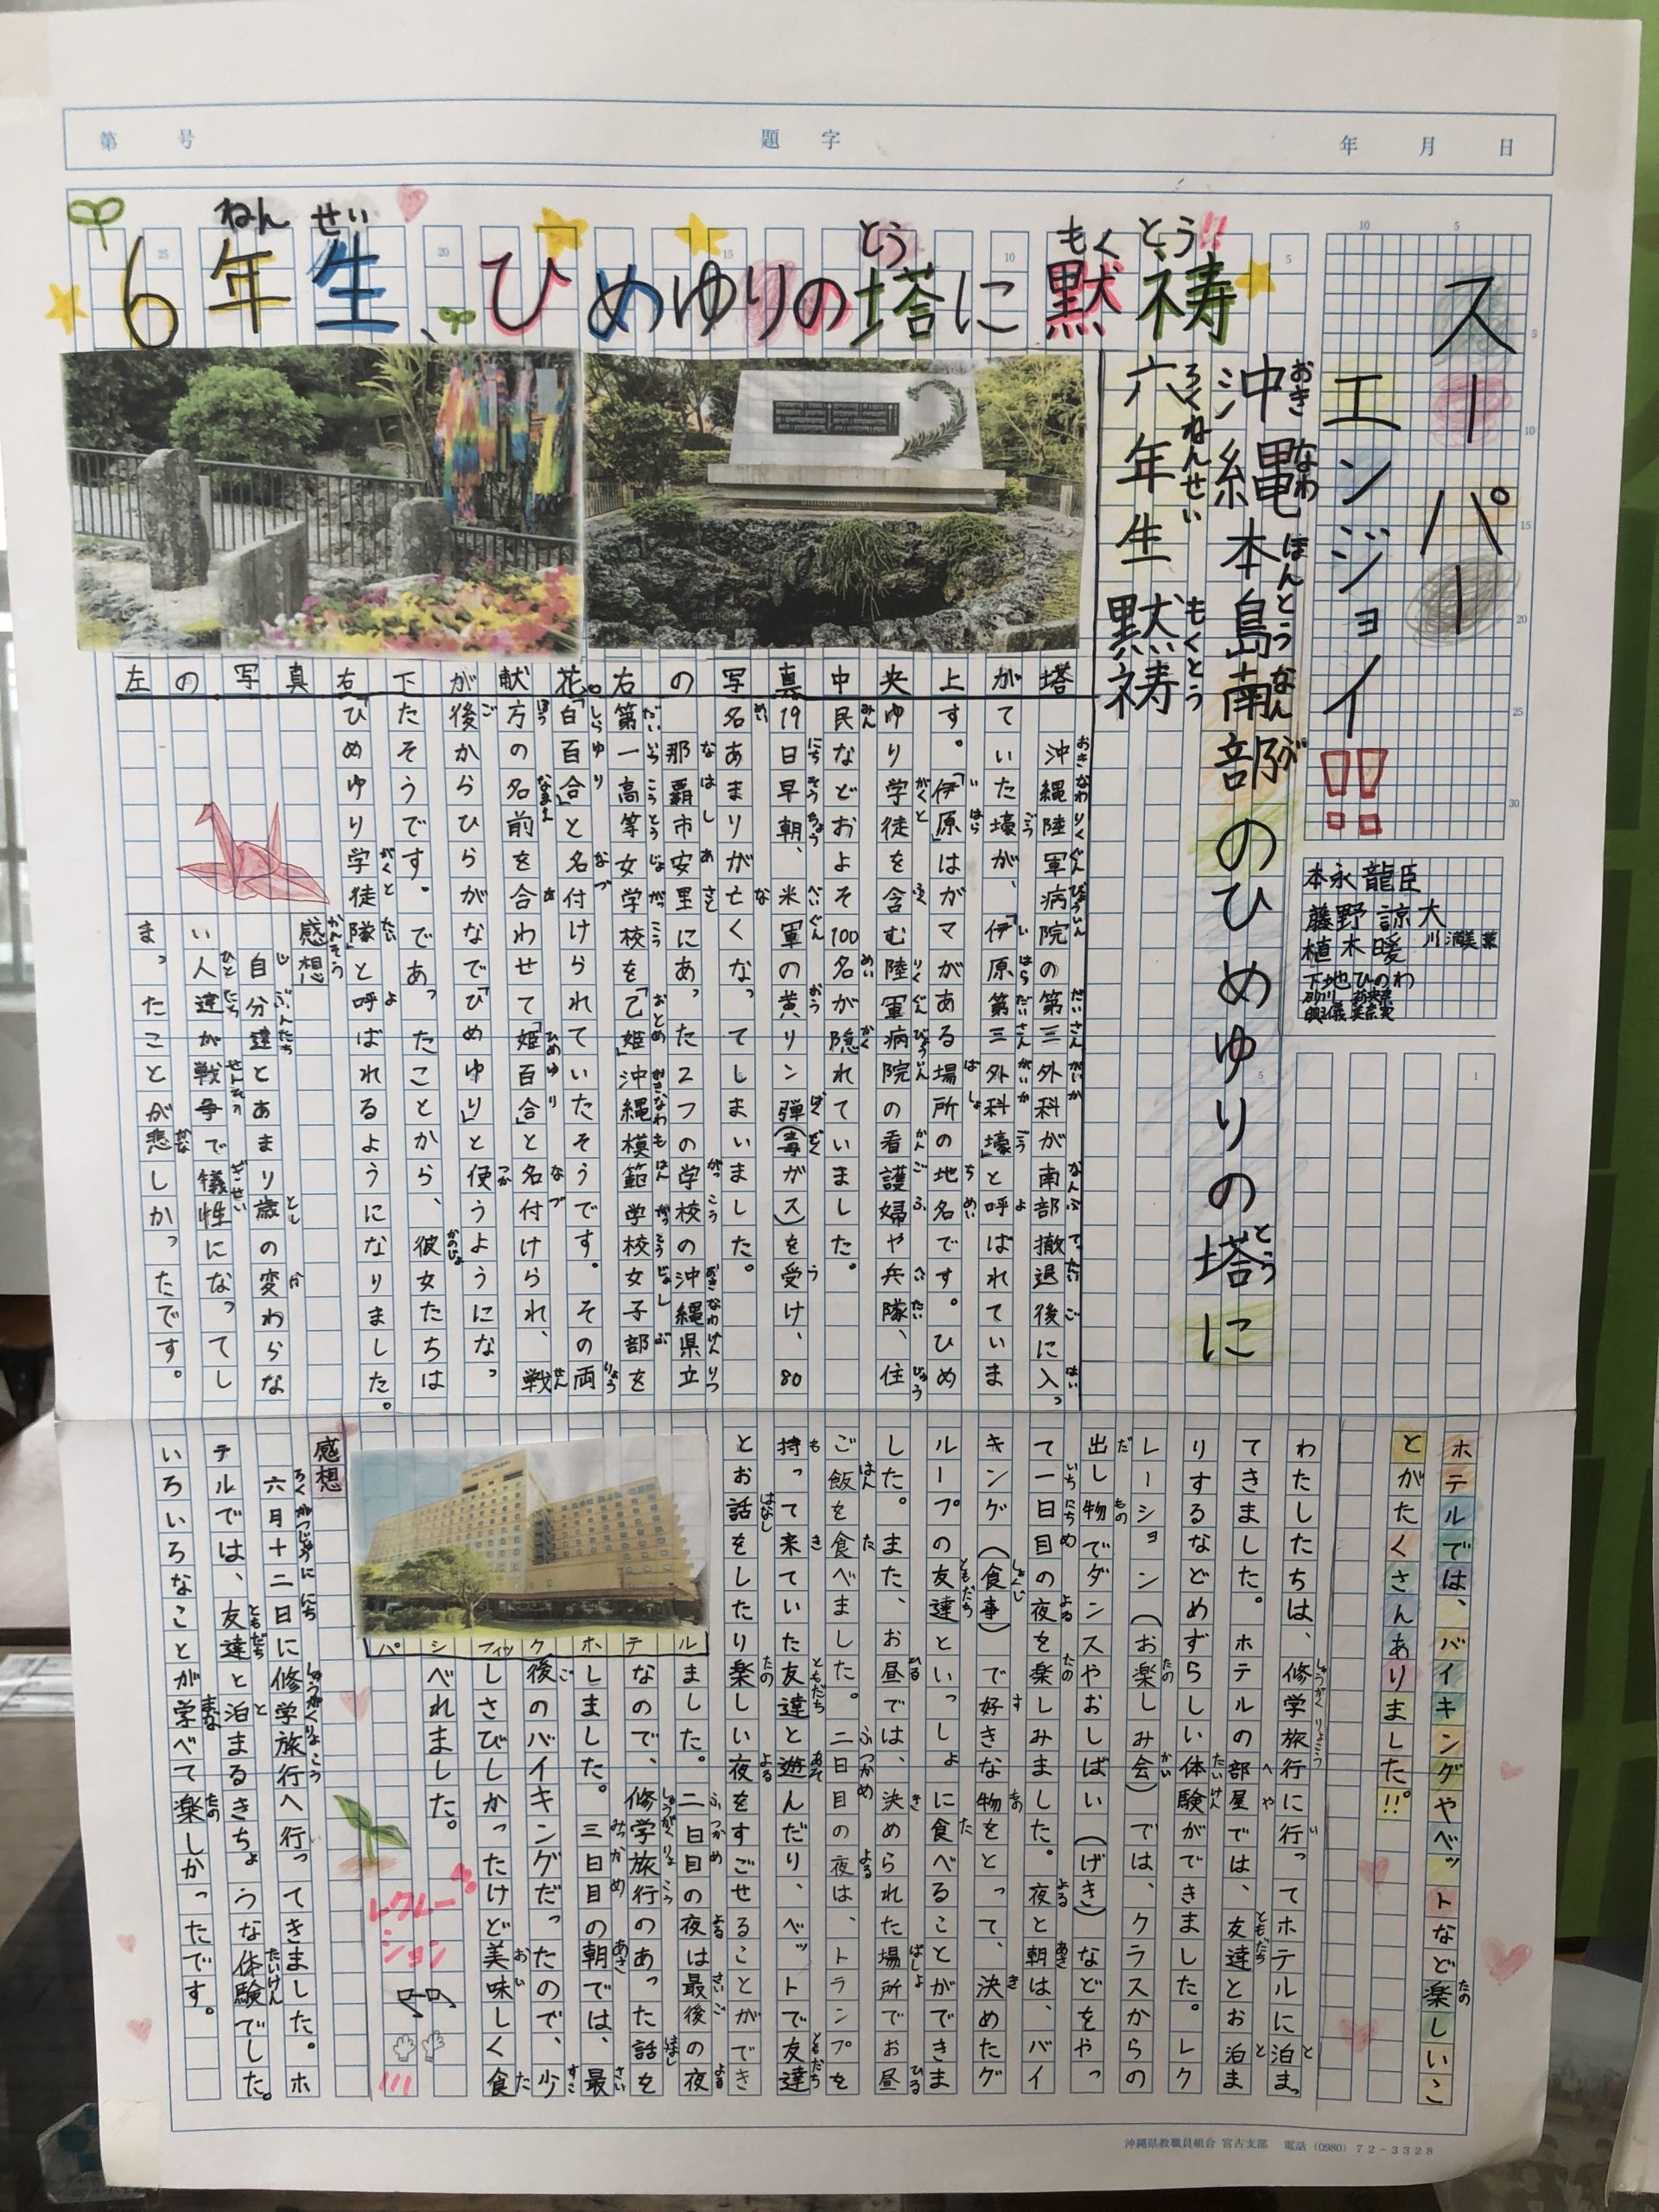 第　号
題字
年　月　日
ねん　せい　とう　もく　とう
6年生、ひめゆりの塔に黙祷!!
スーパー
エンジョイ!!
本永龍臣
藤野諒大
植木暖
下地ひのわ
沖縄本島南部のひめゆりの塔に
おきなわほんとうなんぶ　とう
六年生黙祷
ろくねんせい　もくとう
塔が上中央の写真
右の花。献が下右真写の左
沖縄陸軍病院の第三外科が南部撤退後に入っ
ていた壕が、「伊原第三外科壕」と呼ばれていま
す。「伊原」はガマがある場所の地名です。ひめ
ゆり学徒を含む陸軍病院の看護婦や兵隊、住
民などおよそ100名が隠れていました。
19日早朝、米軍の黄リン弾(毒ガス)を受け、80
名あまりが亡くなってしまいました。
那覇市安里にあった2つの学校の沖縄県立
第一高等女学校を「乙姫」沖縄模範学校女子部を
「白百合」と名付けられていたそうです。その両
方の名前を合わせて「姫百合」と名付けられ、戦
後からひらがなで「ひめゆり」と使うようになっ
たそうです。であったことから、彼女たちは
「ひめゆり学徒隊」と呼ばれるようになりました。
感想
自分達とあまり歳の変わらな
い人達が戦争で犠牲になってし
まったことが悲しかったです。
ホテルでは、バイキングやベットなど楽しいこ
とがたくさんありました!!
わたしたちは、修学旅行に行ってホテルに泊まっ
てきました。ホテルの部屋では、友達とお泊ま
りするなどめずらしい体験ができました。レク
レーション(お楽しみ会)では、クラスからの
出し物でダンスやおしばい(げき)などをやっ
て一日目の夜を楽しみました。夜と朝は、バイ
キング(食事)で好きな物をとって、決めたグ
ループの友達といっしょに食べることができま
した。また、お昼では、決められた場所でお昼
ご飯を食べました。二日目の夜は、トランプを
持って来ていた友達と遊んだり、ベットで友達
とお話をしたり楽しい夜をすごせることができ
ました。二日目の夜は最後の夜
なので、修学旅行のあった話を
しました。三日目の朝では、最
後のバイキングだったので、少
しさびしかったけど美味しく食
べれました。
パシフィックホテル
レクレーション
感想
六月十二日に修学旅行へ行ってきました。ホ
テルでは、友達と泊まるきちょうな体験でした。
いろいろなことが学べて楽しかったです。
沖縄県教職員組合 宮古支部　電話 (0980) 72-3328